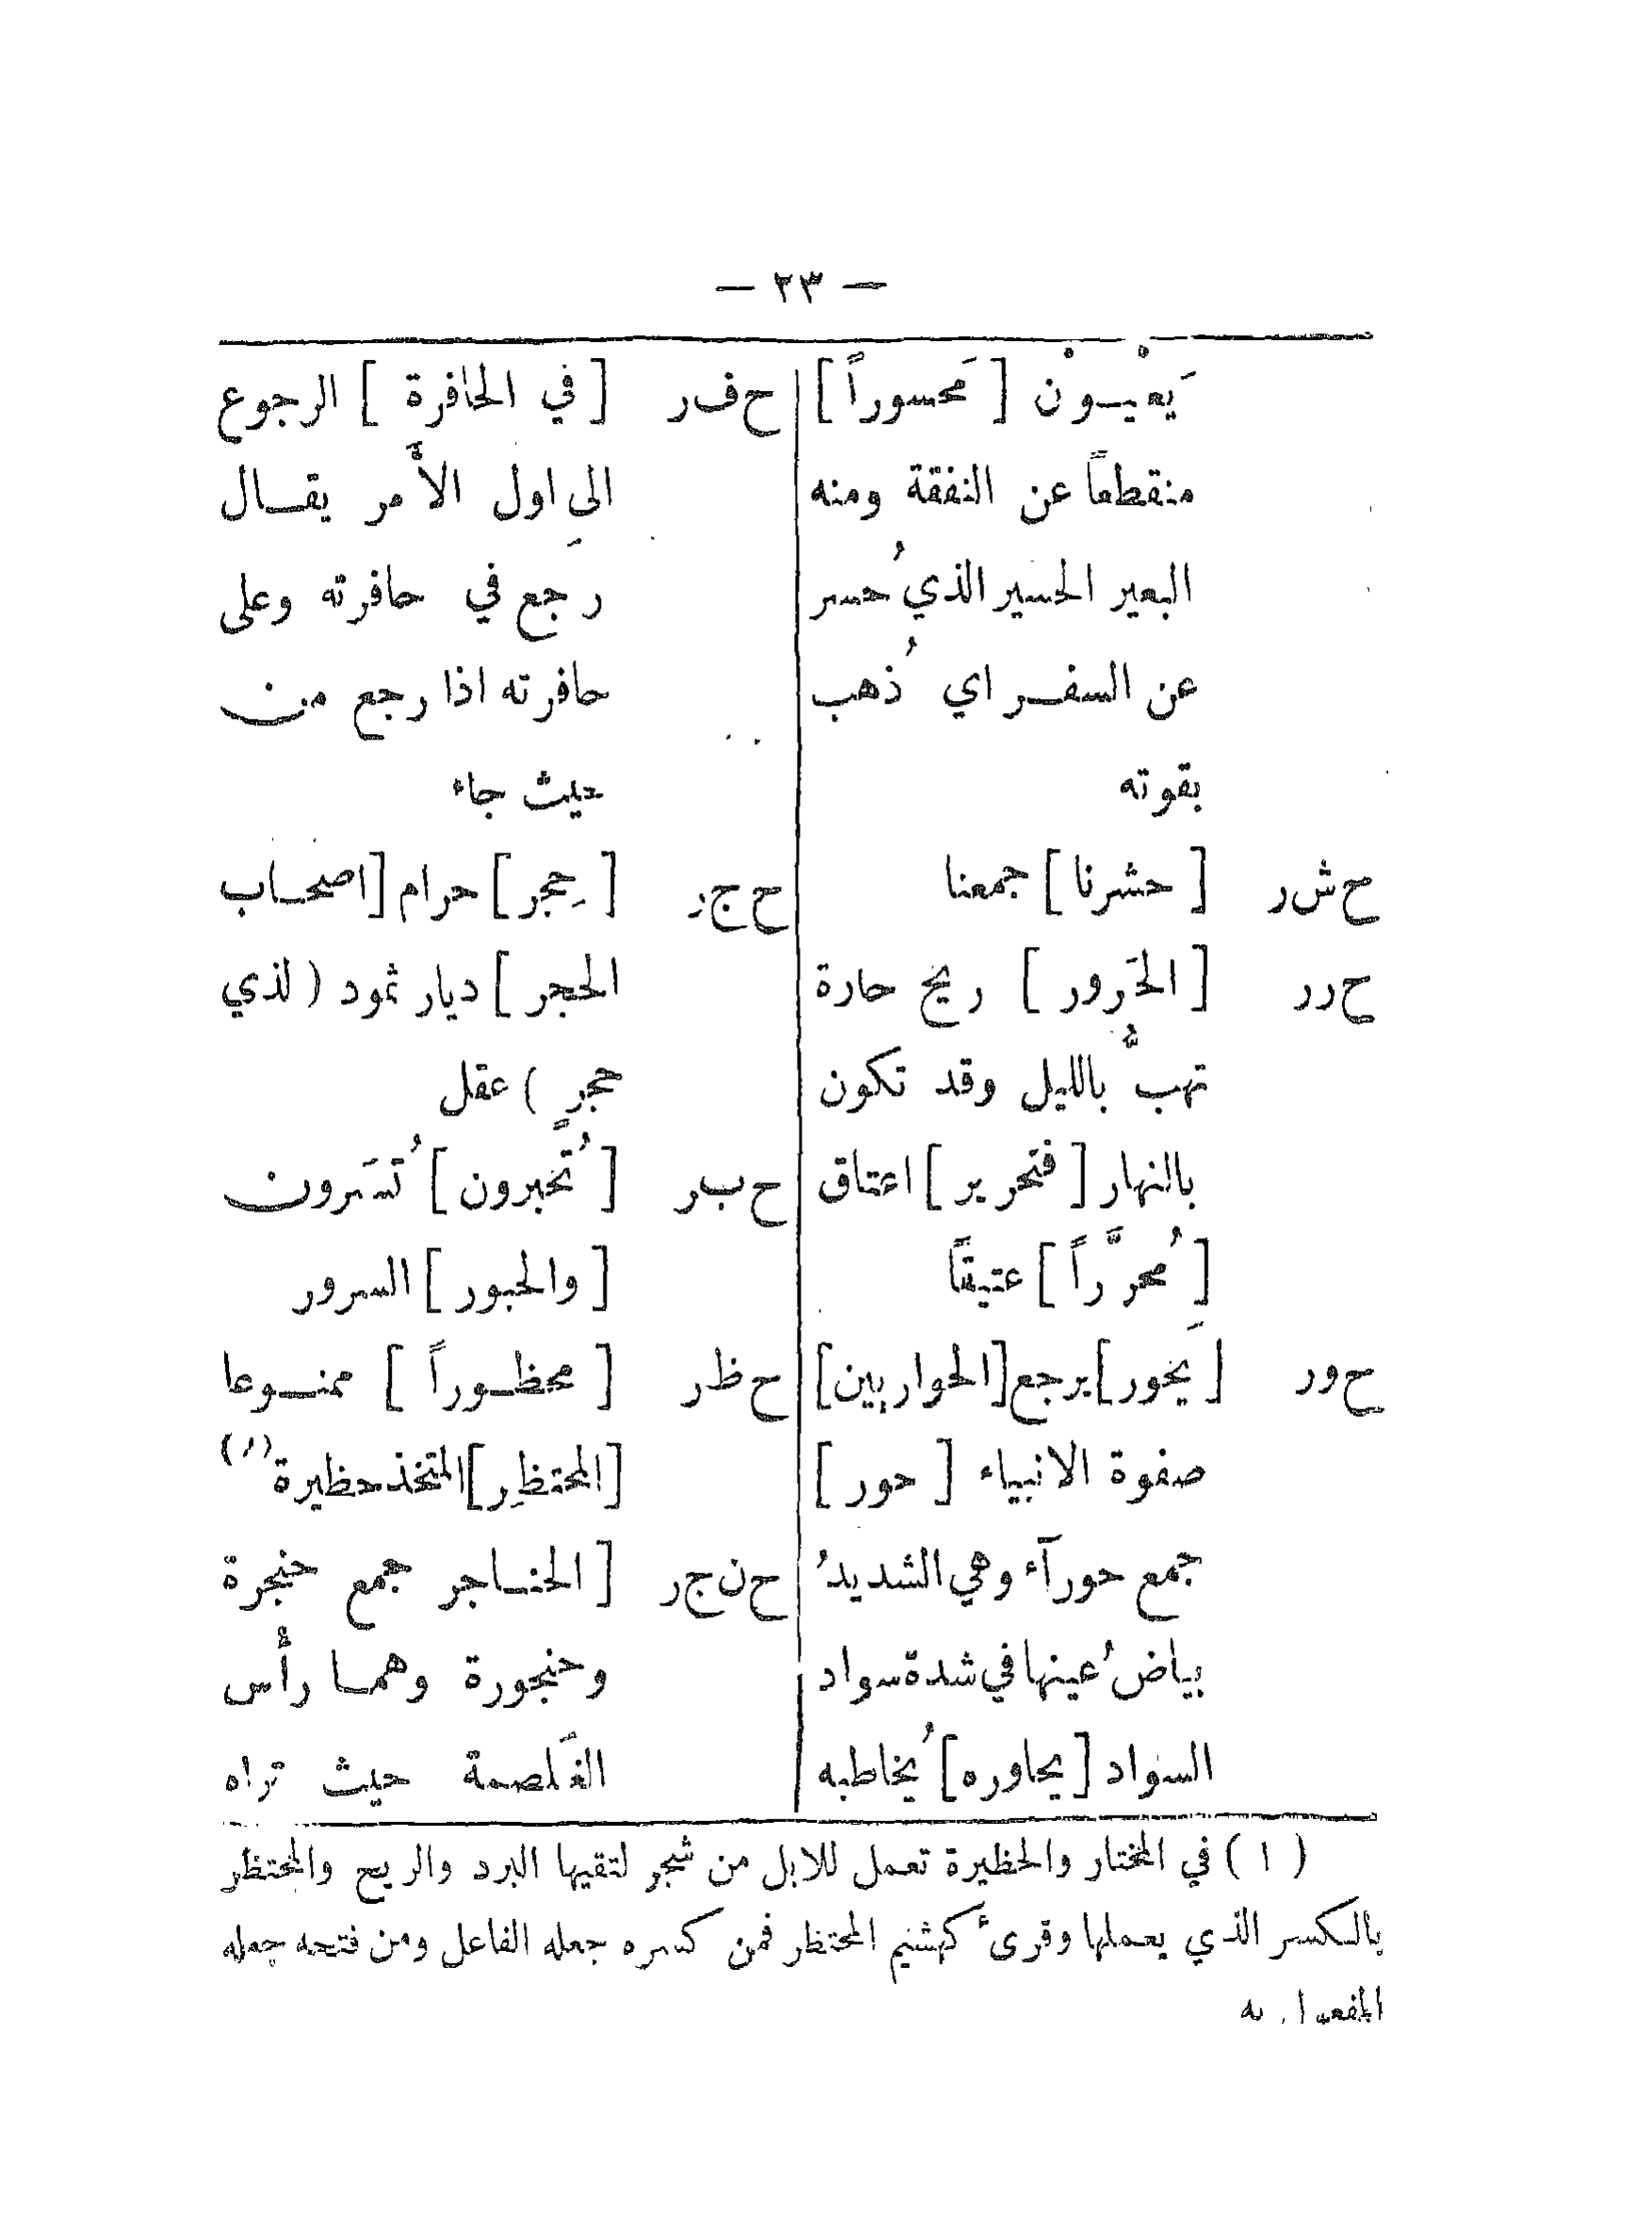 — ٢٣ —
يَعْيَوْنْ [ مَحسوراً ]
منقطعاً عن النفقة ومنه
البعير الحسير الذي حُسر
عن السفر اي ذُهب
بقوته
ح ش ر [ حشرنا ] جمعنا
ح ر ر [ الحَرور ] ريح حارة
تهبُّ بالليل وقد تكون
بالنهار [ فتحرير ] اعتاق
[ مُحرَّراً ] عتيقاً
ح و ر [ يَحور ] يرجع [الحواريين]
صفوة الانبياء [ حور ]
جمع حورآء وهي الشديدُ
بياضُ عينها في شدة سواد
السواد [ يحاوره ] يُخاطبه
ح ف ر [ في الحافرة ] الرجوع
الى اولِ الأَمر يقال
رجع في حافرته وعلى
حافرته اذا رجع من
حيث جاء
ح ج ر [ حِجر ] حرام [ اصحاب
الحجر ] ديار ثمود ( لذي
حجرٍ ) عقل
ح ب ر [ تُحبرون ] تُسَرون
[ والحبور ] السرور
ح ظ ر [ محظوراً ] ممنوعا
[ المحتظِر ] المتخذ حظيرة (١)
ح ن ج ر [ الحناجر جمع حنجرة
وحنجورة وهما رأْس
الغَلصمة حيث تراه
( ١ ) في المختار والحظيرة تعمل للابل من شجر لتقيها البرد والريح والمحتظر
بالكسر الذي يعملها وقرئ كهشيم المحتظر فمن كسره جعله الفاعل ومن فتحه جعله
المفعول به